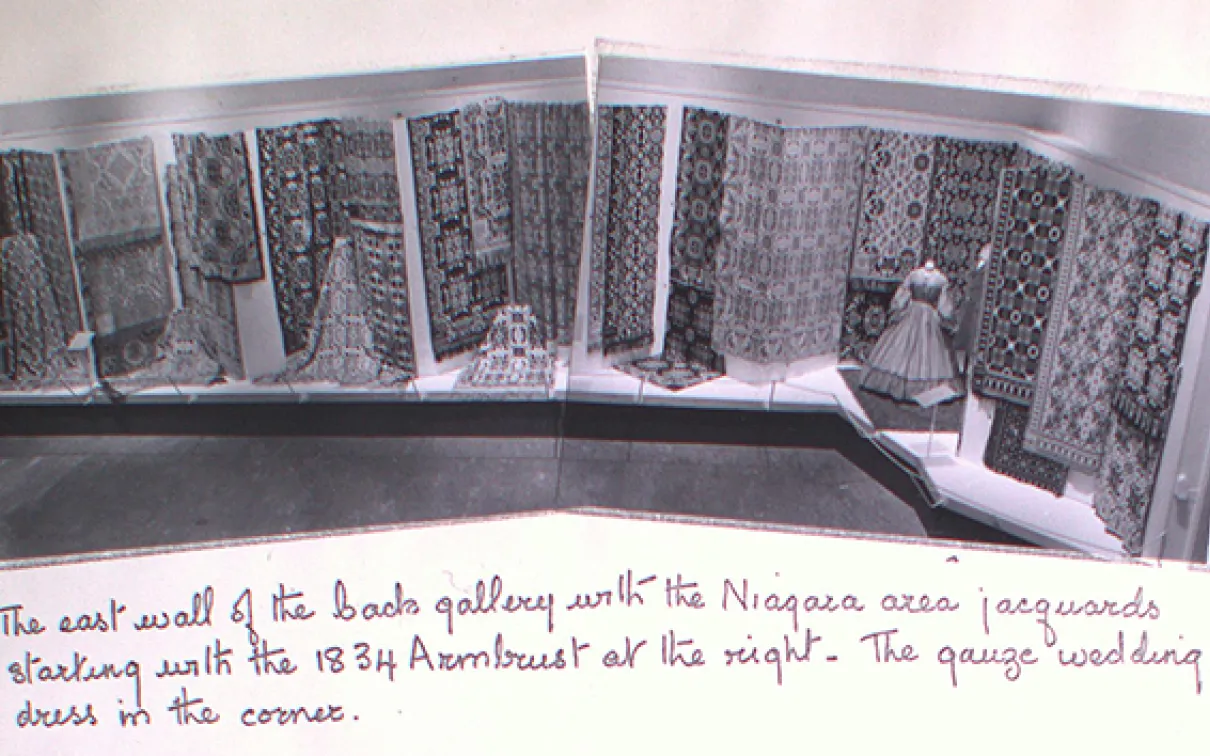 The east wall of the back gallery with the Niagara area jacquards
starting with the 1834 Armbrust at the right - The gauze wedding
dress in the corner.